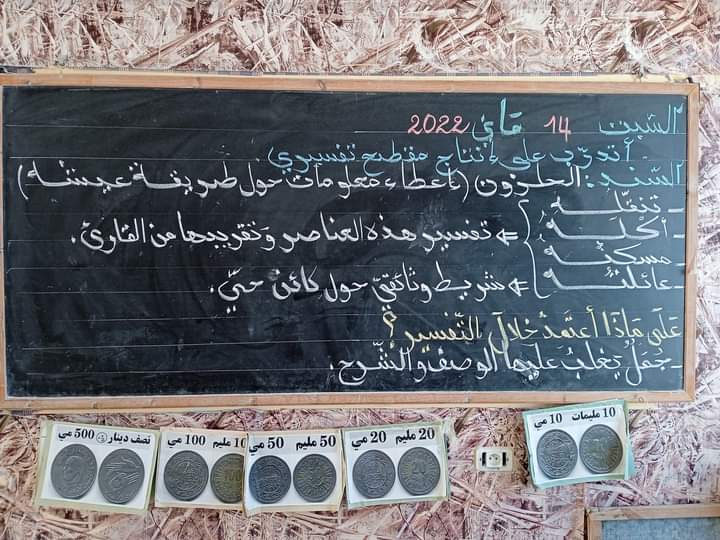 السّبت 14 ماي 2022
أتدرّب على إنتاج مقطع تفسيري.
السّند: الحلزون (بإعطاء معلومات حول طريقة عيشه)
- تنقّله
- أكله
- مسكنه
- عائلته
⇐ تفسير هذه العناصر وتقريبها من القارئ.
⇐ شريط وثائقيّ حول كائن حيّ.
على ماذا أعتمد خلال التّفسير؟
- جمل يغلب عليها الوصف والشّرح.
نصف دينار 500 مي
100 مليم 100 مي
50 مليم 50 مي
20 مليم 20 مي
10 مليمات 10 مي